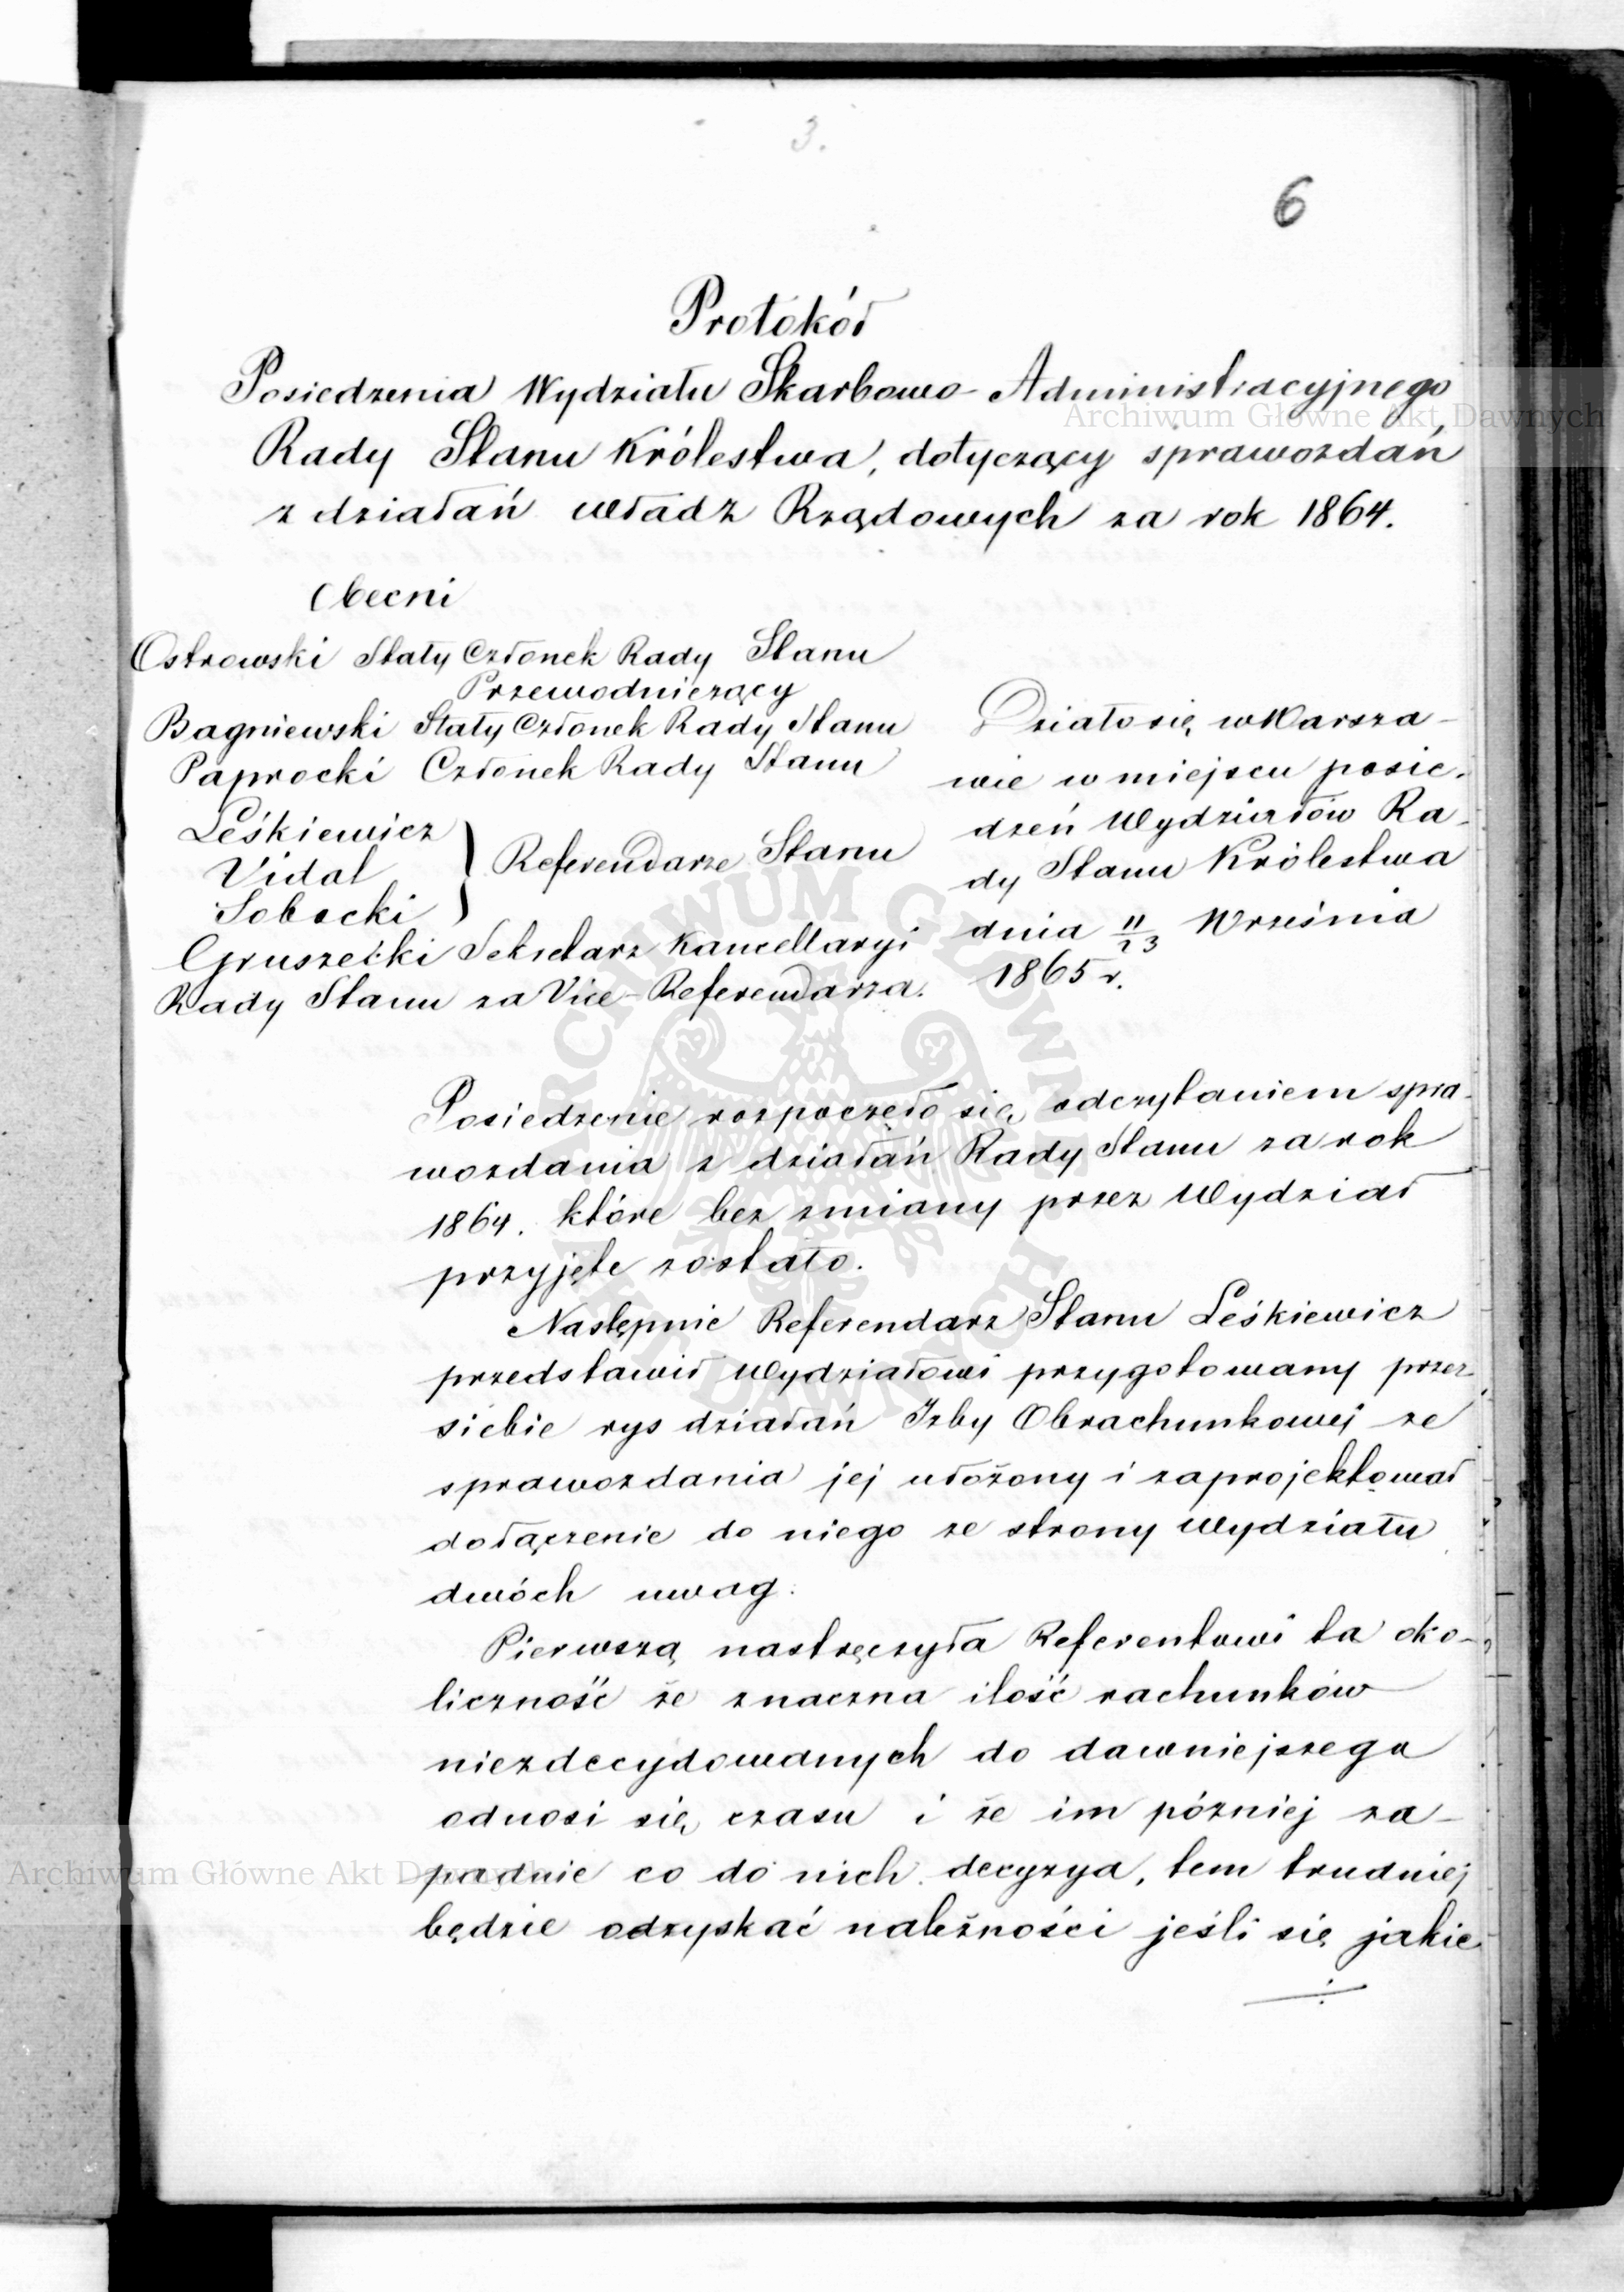 3.
6
Protokół
Posiedzenia Wydziału Skarbowo-Administracyjnego
Rady Stanu Królestwa, dotyczący sprawozdań
z działań władz Rządowych za rok 1864.
Obecni
Ostrowski Stały Członek Rady Stanu
Przewodniczący
Bagniewski Stały Członek Rady Stanu
Paprocki Członek Rady Stanu
Leśkiewicz
Vidal
Sobocki
} Referendarze Stanu
Gruszecki Sekretarz Kancellaryi
Rady Stanu za Vice-Referendarza.
Działo się w Warsza-
wie w miejscu posie-
dzeń Wydziałów Ra-
dy Stanu Królestwa
dnia 11/23 Września
1865 r.
Posiedzenie rozpoczęło się odczytaniem spra-
wozdania z działań Rady Stanu za rok
1864. które bez zmiany przez Wydział
przyjęte zostało.
Następnie Referendarz Stanu Leśkiewicz
przedstawił Wydziałowi przygotowany przez
siebie rys działań Izby Obrachunkowej ze
sprawozdania jej ułożony i zaprojektował
dołączenie do niego ze strony Wydziału
dwóch uwag.
Pierwszą nastręczyła Referentowi ta oko-
liczność że znaczna ilość rachunków
niezdecydowanych do dawniejszego
odnosi się czasu i że im później za-
padnie co do nich decyzya, tem trudniej
będzie odzyskać należności jeśli się jakie
Archiwum Główne Akt Dawnych
ARCHIWUM GŁÓWNE AKT DAWNYCH
Archiwum Główne Akt Dawnych